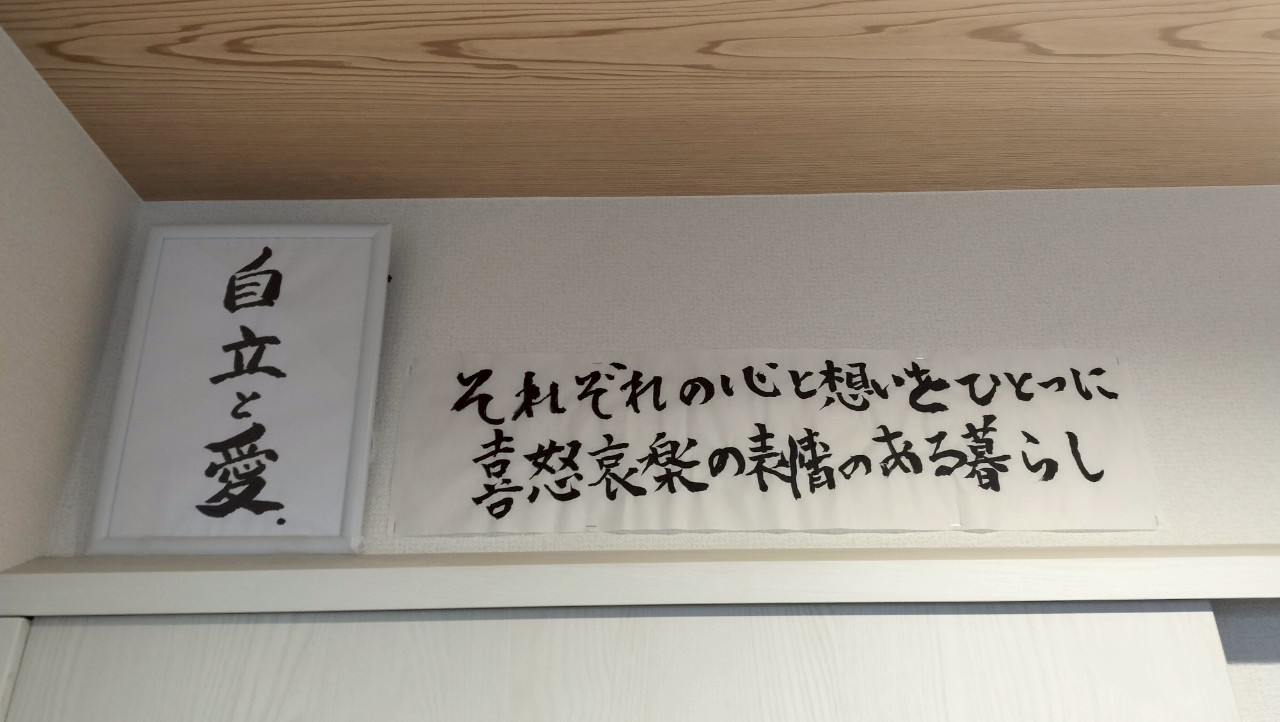 自立と愛.
それぞれの心と想いをひとつに
喜怒哀楽の表情のある暮らし